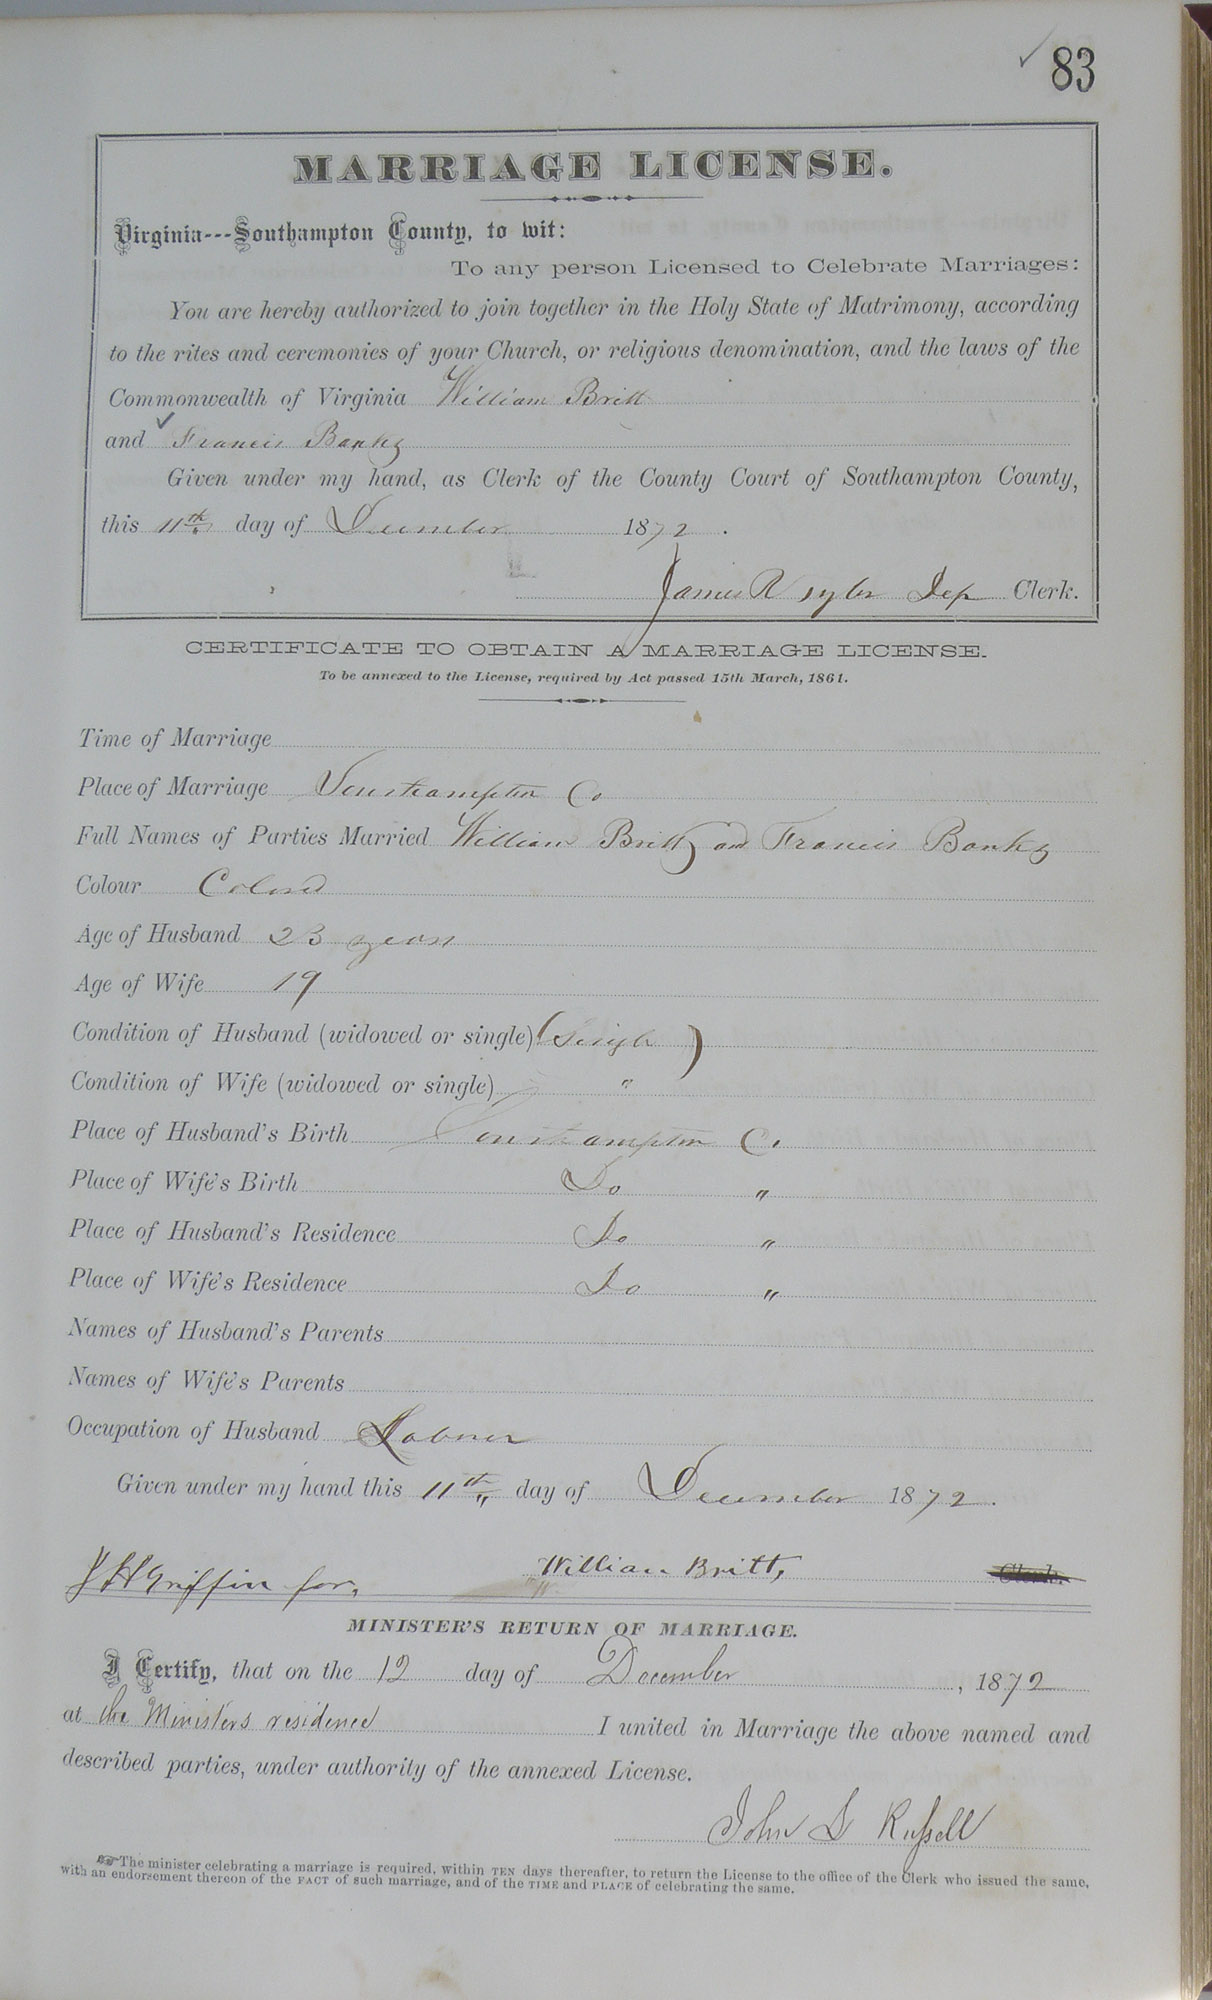 83
MARRIAGE LICENSE.
Virginia---Southampton County, to wit:
To any person Licensed to Celebrate Marriages:
You are hereby authorized to join together in the Holy State of Matrimony, according
to the rites and ceremonies of your Church, or religious denomination, and the laws of the
Commonwealth of Virginia William Britt
and Francis Banks
Given under my hand, as Clerk of the County Court of Southampton County,
this 11th day of December 1872.
James R Dep Clerk.
CERTIFICATE TO OBTAIN A MARRIAGE LICENSE.
To be annexed to the License, required by Act passed 15th March, 1861.
Time of Marriage
Place of Marriage Southampton Co
Full Names of Parties Married William Britt and Francis Banks
Colour Colored
Age of Husband 23 years
Age of Wife 19
Condition of Husband (widowed or single) (Single)
Condition of Wife (widowed or single) "
Place of Husband's Birth Southampton Co.
Place of Wife's Birth Do "
Place of Husband's Residence Do "
Place of Wife's Residence Do "
Names of Husband's Parents
Names of Wife's Parents
Occupation of Husband Laborer
Given under my hand this 11th day of December 1872.
J H Griffin for, William Britt, Clerk.
MINISTER'S RETURN OF MARRIAGE.
I Certify, that on the 12 day of December, 1872
at the Ministers residence I united in Marriage the above named and
described parties, under authority of the annexed License.
John L Russell
☞The minister celebrating a marriage is required, within TEN days thereafter, to return the License to the office of the Clerk who issued the same,
with an endorsement thereon of the FACT of such marriage, and of the TIME and PLACE of celebrating the same.